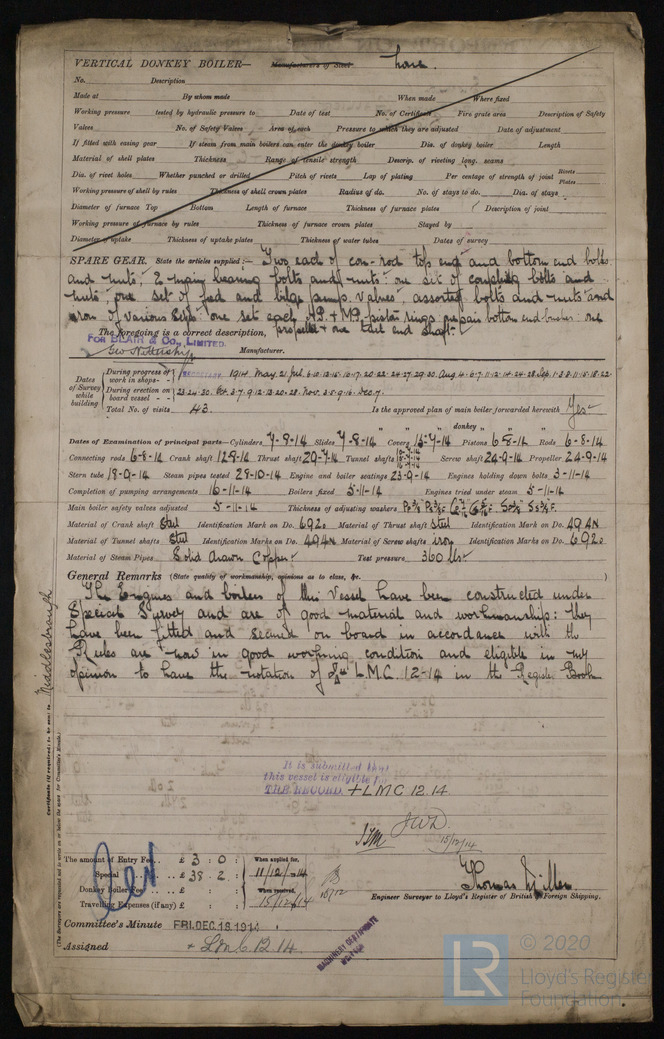 VERTICAL DONKEY BOILER— Manufacturers of Steel None.
No. Description
Made at By whom made When made Where fixed
Working pressure tested by hydraulic pressure to Date of test No. of Certificate Fire grate area Description of Safety
Valves No. of Safety Valves Area of each Pressure to which they are adjusted Date of adjustment
If fitted with easing gear If steam from main boilers can enter the donkey boiler Dia. of donkey boiler Length
Material of shell plates Thickness Range of tensile strength Descrip. of riveting long. seams
Dia. of rivet holes Whether punched or drilled Pitch of rivets Lap of plating Per centage of strength of joint Rivets Plates
Working pressure of shell by rules Thickness of shell crown plates Radius of do. No. of stays to do. Dia. of stays
Diameter of furnace Top Bottom Length of furnace Thickness of furnace plates Description of joint
Working pressure of furnace by rules Thickness of furnace crown plates Stayed by
Diameter of uptake Thickness of uptake plates Thickness of water tubes Dates of survey
SPARE GEAR. State the articles supplied:— Two each of con-rod top end and bottom end bolts
and nuts; 2 main bearing bolts and nuts: one set of coupling bolts and
nuts; one set of feed and bilge pump valves, assorted bolts and nuts and
iron of various sizes: one set each HP & MP piston rings, bottom end one
propeller & one tail end shaft.
The foregoing is a correct description,
FOR BLAIR & Co., LIMITED.
Manufacturer.
Dates of Survey while building
During progress of work in shops - - 1914. May. 21. Jul. 6.10.13.15.16.17.20.22.24.27.29.30. Aug 4.6.7.11.12.14.24.28. Sep. 1.3.8.11.15.18.22.
During erection on board vessel - - - 23.24.30. Oct. 3.7.9.12.13.20.28. Nov. 3.5.9.16. Dec. 7.
Total No. of visits 43. Is the approved plan of main boiler forwarded herewith Yes
" " " donkey " " "
Dates of Examination of principal parts—Cylinders 7-8-14 Slides 7-8-14 Covers 14-7-14 Pistons 6-8-14 Rods 6-8-14
Connecting rods 6-8-14 Crank shaft Thrust shaft 29-7-14 Tunnel shafts Screw shaft 24-9-14 Propeller 24-9-14
Stern tube 18-9-14 Steam pipes tested 28-10-14 Engine and boiler seatings 23-9-14 Engines holding down bolts 3-11-14
Completion of pumping arrangements 16-11-14 Boilers fixed 5-11-14 Engines tried under steam 5-11-14
Main boiler safety valves adjusted 5-11-14 Thickness of adjusting washers
Material of Crank shaft Steel Identification Mark on Do. 6920 Material of Thrust shaft Steel Identification Mark on Do. 494N
Material of Tunnel shafts Steel Identification Marks on Do. 494N Material of Screw shafts iron Identification Marks on Do. 6920
Material of Steam Pipes Solid drawn Copper Test pressure 360 lbs
General Remarks (State quality of workmanship, opinions as to class, &c.
The Engines and boilers of this vessel have been constructed under
Special Survey and are of good material and workmanship: they
have been fitted and secured on board in accordance with the
Rules are now in good working condition and eligible in my
opinion to have the notation of L.M.C. 12-14 in the Register Book
It is submitted that
this vessel is eligible for
THE RECORD. + LMC 12.14
JWD
15/12/14
Certificate (if required) to be sent to Middlesbrough
(The Surveyors are requested not to write on or below the space for Committee's Minute.)
The amount of Entry Fee.. £ 3 : 0 : When applied for,
Special .. £ 38 . 2 : 11/12/14
Donkey Boiler Fee .. £ : : When received,
Travelling Expenses (if any) £ : : 15/12/14
Engineer Surveyor to Lloyd's Register of British & Foreign Shipping.
Committee's Minute FRI. DEC. 18. 1914
Assigned + LMC 12.14
MACHINERY CERTIFICATE
LR
© 2020
Lloyd's Register
Foundation